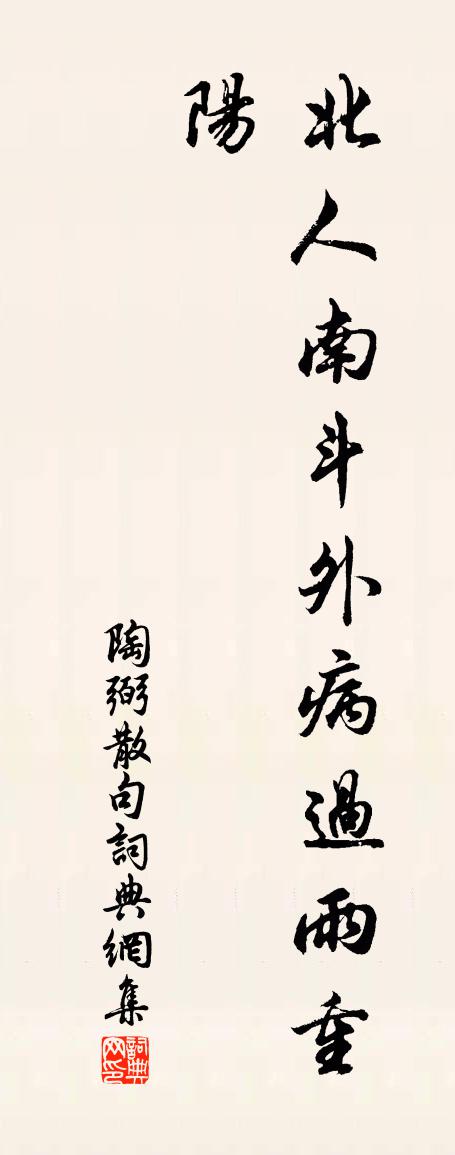 北人南斗外病過兩重
陽
陶弼散句詞典網集
詞典
网印